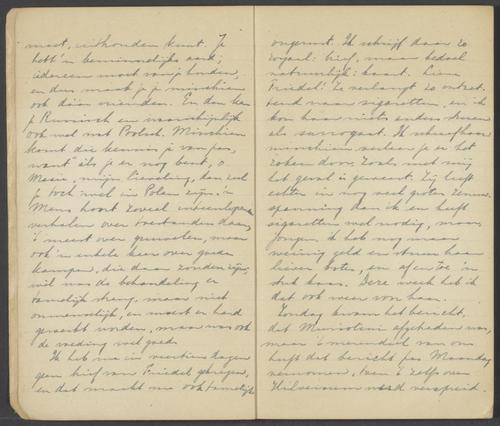 moet, onthouden kunt. Je
hebt 'n beminnelijke aard,
iedereen moet van je houden,
en dus maak je je misschien
ook daar vrienden. En dan ken
je Russisch en waarschijnlijk
ook wel wat Poolsch. Misschien
komt die kennis je van pas,
want als je er nog bent, o
Masie, mijn lieveling, dan zul
je toch wel in Polen zijn. 'n
Mens hoort zoveel uiteenlopende
verhalen over toestanden daar,
't meest over gruwelen, maar
ook 'n enkele keer over goede
kampen, die daar zouden zijn,
wil van de behandeling er
tamelijk streng, maar niet
onmenselijk, en moet er hard
gewerkt worden, maar van ook
de voeding wel goed.
Ik heb nu in veertien dagen
geen brief van Friedel gekregen,
en dat maakt me ook tamelijk
ongerust. Ik schrijf daar zo
royaal: brief, maar bedoel
natuurlijk: kaart. Lieve
Friedel! Ze verlangt zo ontzet-
tend naar sigaretten, en ik
kon haar niets anders sturen
als surrogaat. Ik
misschien verleer je er het
roken door, zoals met mij
het geval is geweest. Zij leeft
echter in nog veel groter zenuw-
spanning dan ik en heeft
sigaretten wel nodig, maar
jongen, ik heb nog maar
weinig geld en stuur haar
liever boter, en af en toe 'n
stuk kaas. Deze week heb ik
dat ook weer voor haar.
Zondag kwam het bericht,
dat Mussolini afgetreden was,
maar 't merendeel van ons
heeft dat bericht pas Maandag
vernomen, toen 't zelfs over
Hilversum werd verspreid.